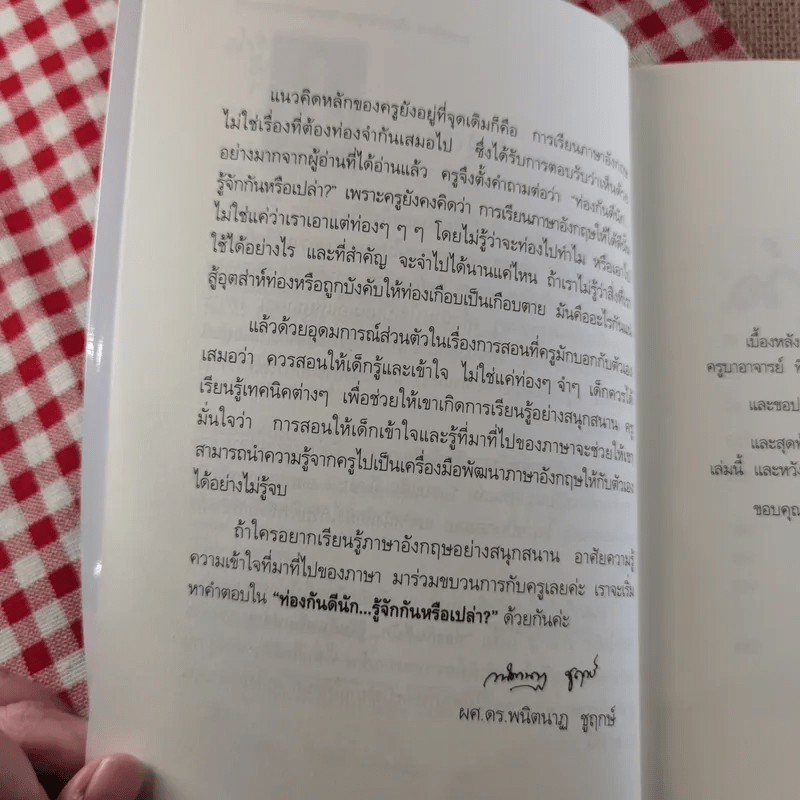 แนวคิดหลักของครูยังอยู่ที่จุดเดิมก็คือ การเรียนภาษาอังกฤษ
ไม่ใช่เรื่องที่ต้องท่องจำกันเสมอไป ซึ่งได้รับการตอบรับว่าเห็นด้วย
อย่างมากจากผู้อ่านที่ได้อ่านแล้ว ครูจึงตั้งคำถามต่อว่า "ท่องกันดีนัก
รู้จักกันหรือเปล่า?" เพราะครูยังคงคิดว่า การเรียนภาษาอังกฤษให้ได้ดีนั้น
ไม่ใช่แค่ว่าเราเอาแต่ท่องๆ ๆ ๆ โดยไม่รู้ว่าจะท่องไปทำไม หรือเอาไป
ใช้ได้อย่างไร และที่สำคัญ จะจำไปได้นานแค่ไหน ถ้าเราไม่รู้ว่าสิ่งที่เรา
สู้อุตส่าห์ท่องหรือถูกบังคับให้ท่องเกือบเป็นเกือบตาย มันคืออะไรกันแน่
แล้วด้วยอุดมการณ์ส่วนตัวในเรื่องการสอนที่ครูมักบอกกับตัวเอง
เสมอว่า ควรสอนให้เด็กรู้และเข้าใจ ไม่ใช่แค่ท่องๆ จำๆ เด็กควรได้
เรียนรู้เทคนิคต่างๆ เพื่อช่วยให้เขาเกิดการเรียนรู้อย่างสนุกสนาน ครู
มั่นใจว่า การสอนให้เด็กเข้าใจและรู้ที่มาที่ไปของภาษาจะช่วยให้เขา
สามารถนำความรู้จากครูไปเป็นเครื่องมือพัฒนาภาษาอังกฤษให้กับตัวเอง
ได้อย่างไม่รู้จบ
ถ้าใครอยากเรียนรู้ภาษาอังกฤษอย่างสนุกสนาน อาศัยความรู้
ความเข้าใจที่มาที่ไปของภาษา มาร่วมขบวนการกับครูเลยค่ะ เราจะเริ่ม
หาคำตอบใน "ท่องกันดีนัก...รู้จักกันหรือเปล่า?" ด้วยกันค่ะ
พนิตนาฏ ชูฤกษ์
ผศ.ดร.พนิตนาฏ ชูฤกษ์
เบื้องหลัง
ครูบาอาจารย์
และขอ
และสุด
เล่มนี้ และหวัง
ขอบคุณ